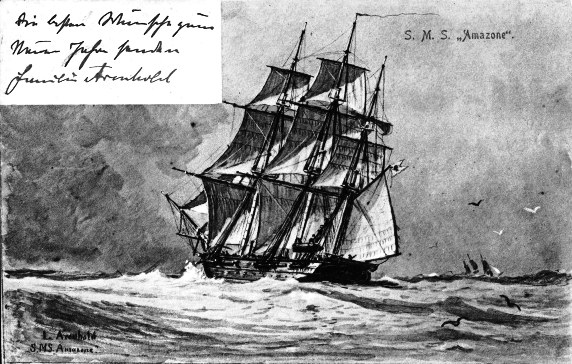 Die besten Wünsche zum
Neuen Jahr senden
Familie Arenhold
S. M. S. „Amazone".
L. Arenhold
S.M.S. Amazone.